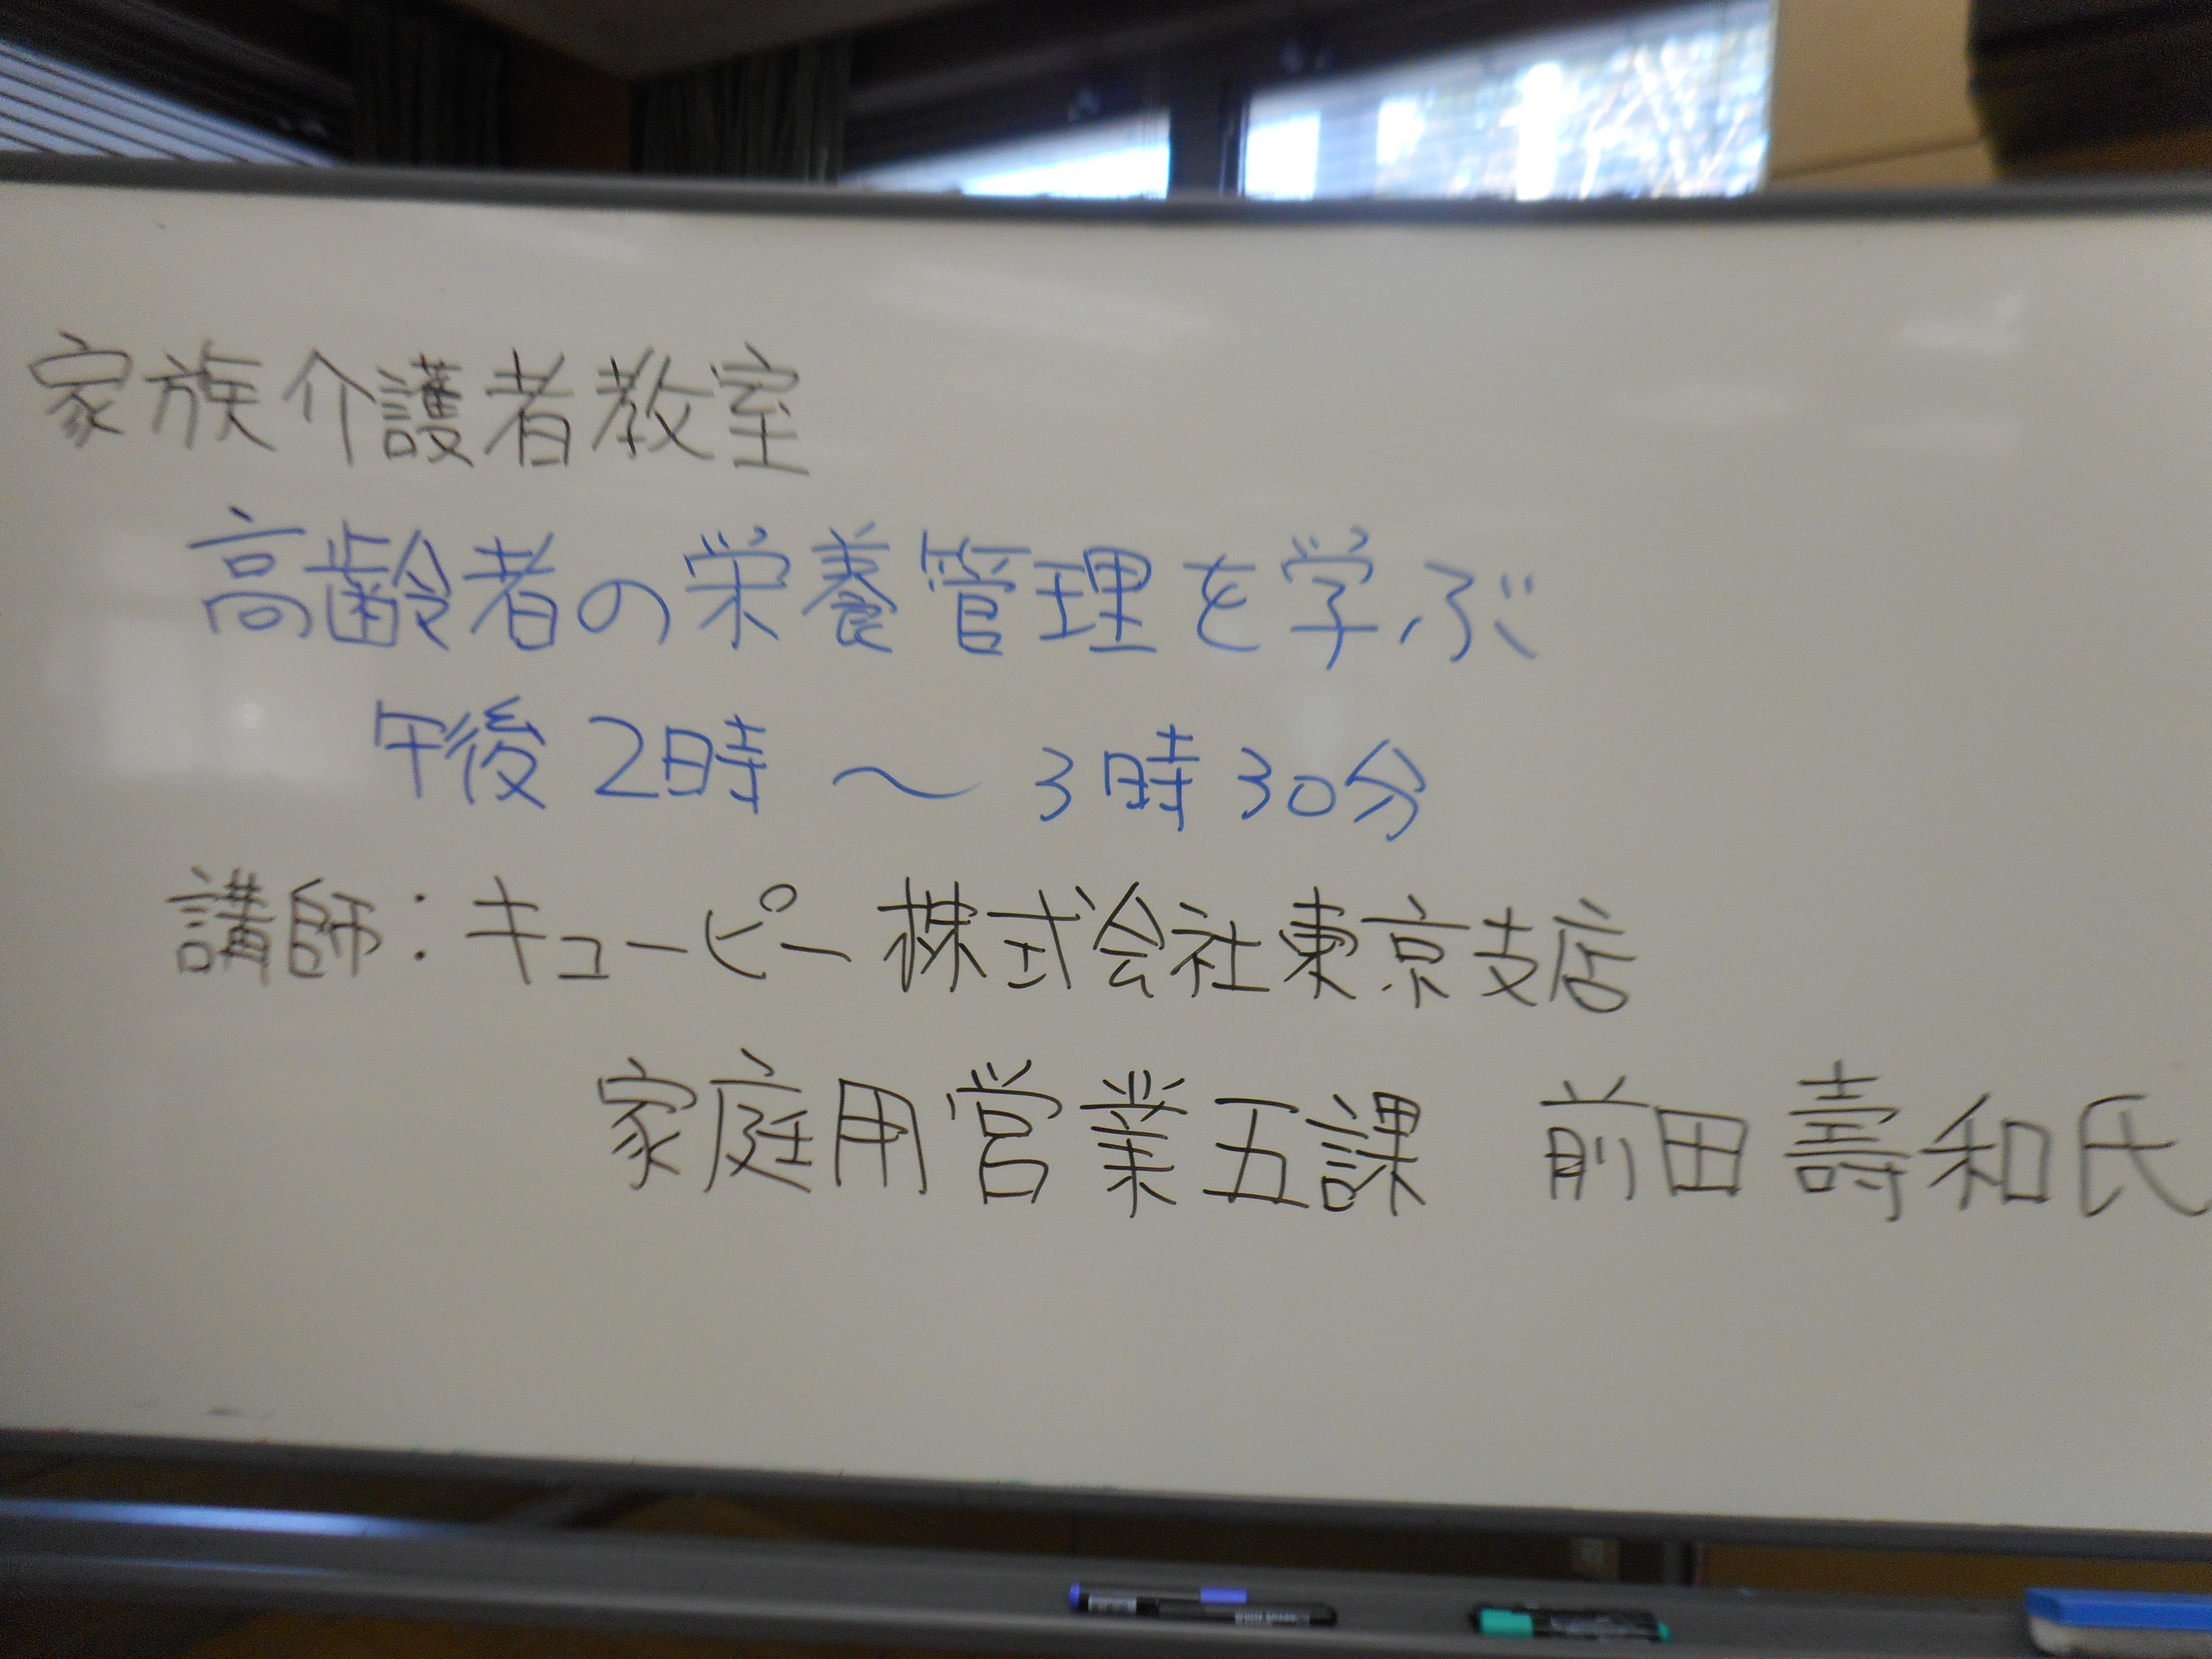 家族介護者教室
高齢者の栄養管理を学ぶ
午後2時〜3時30分
講師：キューピー株式会社東京支店
家庭用営業五課 前田壽和氏